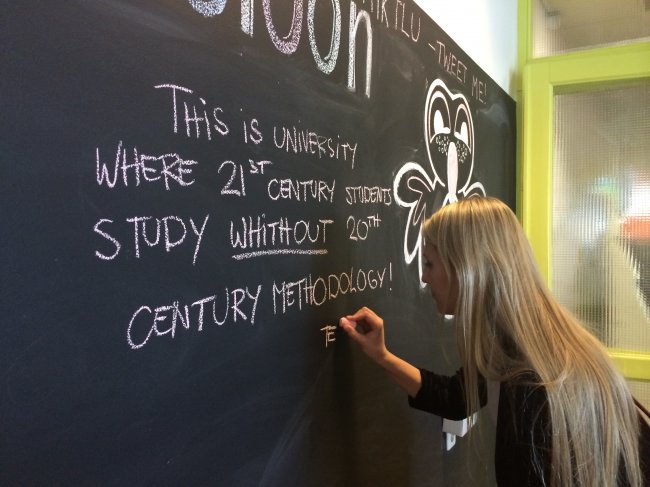 - TWEET ME!
THIS IS UNIVERSITY
WHERE 21ST CENTURY STUDENTS
STUDY WHITHOUT 20TH
CENTURY METHODOLOGY!
TE